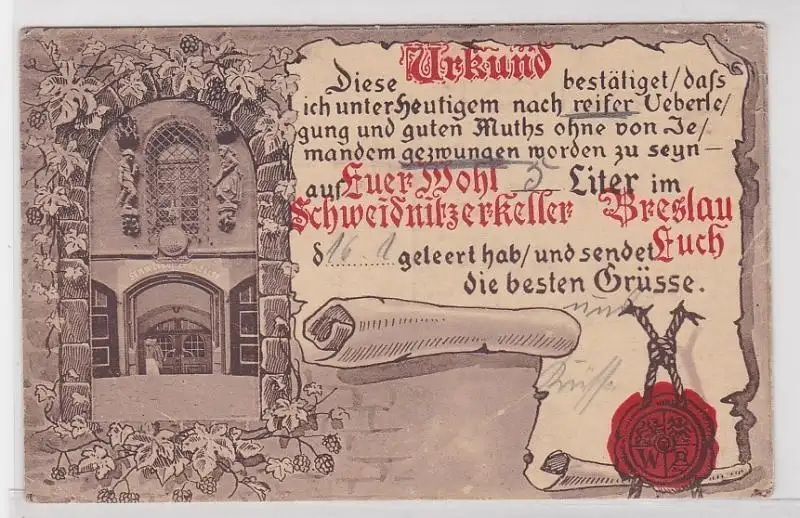 Urkund
Diese bestätiget/daß
ich unter Heutigem nach reifer Ueberle/
gung und guten Muths ohne von Je/
mandem gezwungen worden zu seyn—
auf Euer Wohl 5 Liter im
Schweidnitzerkeller Breslau
d 16. 1 geleert hab/und sendet Euch
die besten Grüsse.
und
Küsse
W R